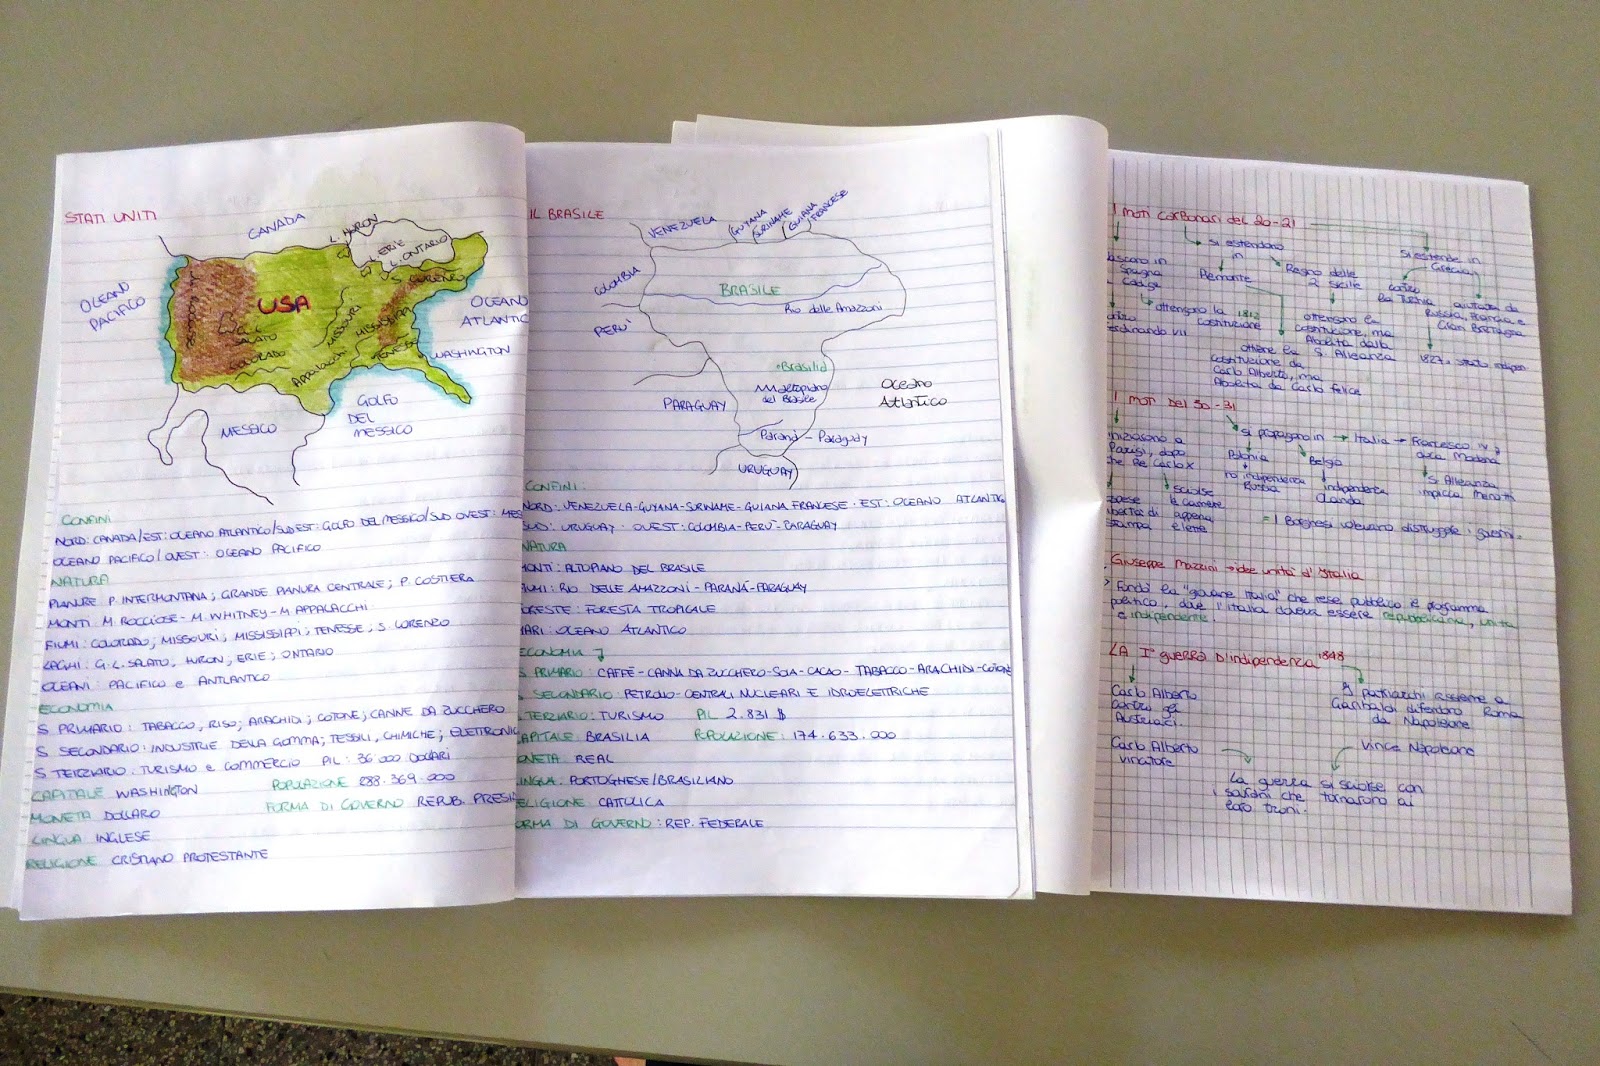 STATI UNITI
CANADA
L. HURON
L. ERIE
L. ONTARIO
S. LORENZO
OCEANO
PACIFICO
USA
OCEANO
ATLANTICO
G. L.
SALATO
COLORADO
MISSOURI
MISSISSIPPI
Appalacchi
TENESSE
WASHINGTON
GOLFO
DEL
MESSICO
MESSICO
CONFINI
NORD: CANADA/EST: OCEANO ATLANTICO/SUD EST: GOLFO DEL MESSICO/SUD OVEST: MES
OCEANO PACIFICO/OVEST: OCEANO PACIFICO
NATURA
PIANURE P. INTERMONTANA; GRANDE PIANURA CENTRALE; P. COSTIERA
MONTI: M. ROCCIOSE - M. WHITNEY - M. APPALACCHI
FIUMI: COLORADO; MISSOURI; MISSISSIPPI; TENESSE; S. LORENZO
LAGHI: G. L. SALATO; HURON; ERIE; ONTARIO
OCEANI: PACIFICO e ANTLANTICO
ECONOMIA
S. PRIMARIO: TABACCO, RISO; ARACHIDI; COTONE; CANNE DA ZUCCHERO
S. SECONDARIO: INDUSTRIE DELLA GOMMA; TESSILI, CHIMICHE; ELETTRONIC
S. TERZIARIO: TURISMO e COMMERCIO PIL: 36 000 DOLLARI
CAPITALE WASHINGTON POPOLAZIONE 288.369.000
MONETA DOLLARO FORMA DI GOVERNO REPUB. PRESI
LINGUA INGLESE
RELIGIONE CRISTIANO PROTESTANTE
IL BRASILE
VENEZUELA
GUYANA
SURINAME
GUIANA
FRANCESE
COLOMBIA
BRASILE
Rio delle Amazzoni
PERÙ
Brasilia
del Brasile
Oceano
Atlantico
PARAGUAY
Paranà - Paraguay
URUGUAY
CONFINI:
NORD: VENEZUELA-GUYANA-SURINAME-GUIANA FRANCESE. EST: OCEANO ATLANTIC
SUD: URUGUAY. OVEST: COLOMBIA-PERÙ-PARAGUAY
NATURA
MONTI: ALTOPIANO DEL BRASILE
FIUMI: RIO DELLE AMAZZONI-PARANÀ-PARAGUAY
FORESTE: FORESTA TROPICALE
MARI: OCEANO ATLANTICO
ECONOMIA
S. PRIMARIO: CAFFÈ-CANNA DA ZUCCHERO-SOIA-CACAO-TABACCO-ARACHIDI-COTONE
S. SECONDARIO: PETROLIO-CENTRALI NUCLEARI E IDROELETTRICHE
S. TERZIARIO: TURISMO PIL 2.831 $
CAPITALE: BRASILIA POPOLAZIONE: 174.633.000
MONETA: REAL
LINGUA: PORTOGHESE/BRASILIANO
RELIGIONE CATTOLICA
FORMA DI GOVERNO: REP. FEDERALE
I moti carbonari del 20-21
si estendono
in
Si estende in
Grecia
Spagna
Cadige
Piemonte
Regno delle
2 Sicilie
contro
la Turchia
aiutata da
Russia, Francia e
Gran Bretagna
ottengono la 1812
costituzione
ottengono la
costituzione, ma
Abolita dalla
S. Alleanza
Ferdinando VII
ottiene la
costituzione da
Carlo Alberto, ma
Abolita da Carlo Felice
1827, stato indipen
I moti del 30-31
iniziarono a
Parigi, dopo
che Re Carlo X
si propagano in → Italia → Francesco IV
duca Modena
Polonia
no indipendenza
Russia
Belgio
indipendenza
Olanda
S. Alleanza
impicca Menotti
sciolse
le camere
appena
elette
libertà di
stampa
= I Borghesi volevano distruggere i
Giuseppe Mazzini → idee unità d'Italia
Fondò la "giovane Italia" che rese pubblico il programma
politico, dove l'Italia doveva essere repubblicana, unita
e indipendente.
LA I° guerra D'indipendenza 1848
Carlo Alberto
contro gli
Austriaci.
Carlo Alberto
vincitore
assieme a
Garibaldi difendono Roma
da Napoleone
Vince Napoleone
La guerra si sciolse con
i sovrani che tornarono ai
loro troni.